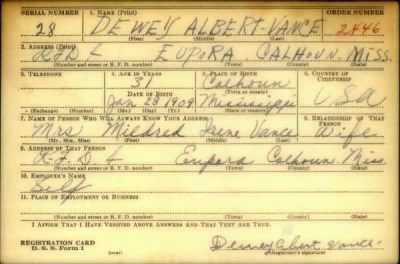 SERIAL NUMBER 1. NAME (Print) ORDER NUMBER
28 DEWEY ALBERT VANCE 2446
(First) (Middle) (Last)
2. ADDRESS (Print)
EUPORA CALHOUN MISS.
(Number and street or R. F. D. number) (Town) (County) (State)
3. TELEPHONE 4. AGE IN YEARS 5. PLACE OF BIRTH 6. COUNTRY OF CITIZENSHIP
31 Calhoun
DATE OF BIRTH
Jan 28 1909 Mississippi USA
(Exchange) (Number) (Mo.) (Day) (Yr.) (State or country)
7. NAME OF PERSON WHO WILL ALWAYS KNOW YOUR ADDRESS 8. RELATIONSHIP OF THAT PERSON
Mrs Mildred Irene Vance Wife
(Mr., Mrs., Miss) (First) (Middle) (Last)
9. ADDRESS OF THAT PERSON
R-F-D Eupora Calhoun Miss.
(Number and street or R. F. D. number) (Town) (County) (State)
10. EMPLOYER'S NAME
Self
11. PLACE OF EMPLOYMENT OR BUSINESS
(Number and street or R. F. D. number) (Town) (County) (State)
I AFFIRM THAT I HAVE VERIFIED ABOVE ANSWERS AND THAT THEY ARE TRUE.
REGISTRATION CARD
D. S. S. Form 1 (over) Dewey Albert Vance
(Registrant's signature)